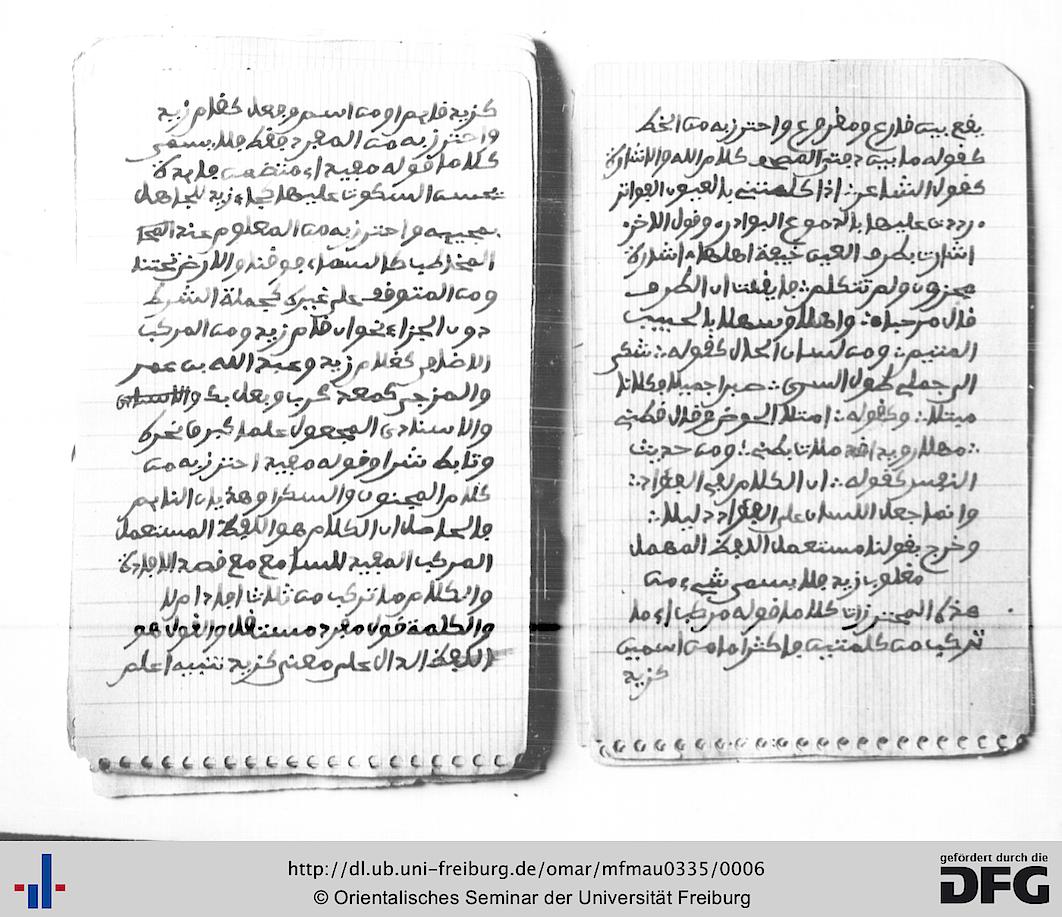 يقع بين قارئ ومقروء واحترز به من الخط
كقوله ما بين دفتي المصحف كلام الله والاشارة
كقول الشاعر: اذا كلمتني بالعيون الفواتر
رددت عليها بالدموع البوادر وقول الاخر
اشارت بطرف العين خيفة اهلها اشارة
محزون ولم تتكلم: فايقنت ان الطرف
قال مرحبا: واهلا وسهلا بالحبيب
المتيم: ومن لسان الحال كقوله: شكى
الي جملي طول السرى: صبرا جميلا فكلانا
مبتلا: وكقوله: امتلا الحوض وقال قطني
: مهلا رويدا قد ملات بطني: ومن حديث
النفس كقوله: ان الكلام لفي الفؤاد:
وانما جعل اللسان على الفؤاد دليلا:
وخرج بقولنا مستعمل اللفظ المهمل
مقلوب زيد فلا يسمى شيء من
هذه المحترزات كلاما قوله مركب اي ما
تركب من كلمتين فاكثر اما من اسمين
كزيد
كزيد قايم او من اسم وفعل كقام زيد
واحترز به من المفرد فقط فلا يسمى
كلاما قوله مفيد اي متضمن فايدة
يحسن السكوت عليها كجاء زيد للجاهل
بمجييه واحترز به من المعلوم عند
المخاطب كالسماء فوقنا والارض تحتنا
ومن المتوقف على غيره كجملة الشرط
دون الجزاء نحو ان قام زيد ومن المركب
الاضافي كغلام زيد وعبد الله بن عمر
والمزجي كمعد كرب وبعل بك
والاسنادي المجعول علما كبرق نحره
وتابط شرا وقوله مفيد احترز به من
كلام المجنون والسكرا وهذيان النايم
فالحاصل ان الكلام هو اللفظ المستعمل
المركب المفيد للسامع مع قصد الافادة
والكلام ما تركب من ثلاث افاد ام لا
والكلمة قول مفرد مستقل والقول هو
اللفظ الدال على معنى كزيد تنبيه اعلم
http://dl.ub.uni-freiburg.de/omar/mfmau0335/0006
© Orientalisches Seminar der Universität Freiburg
gefördert durch die
DFG